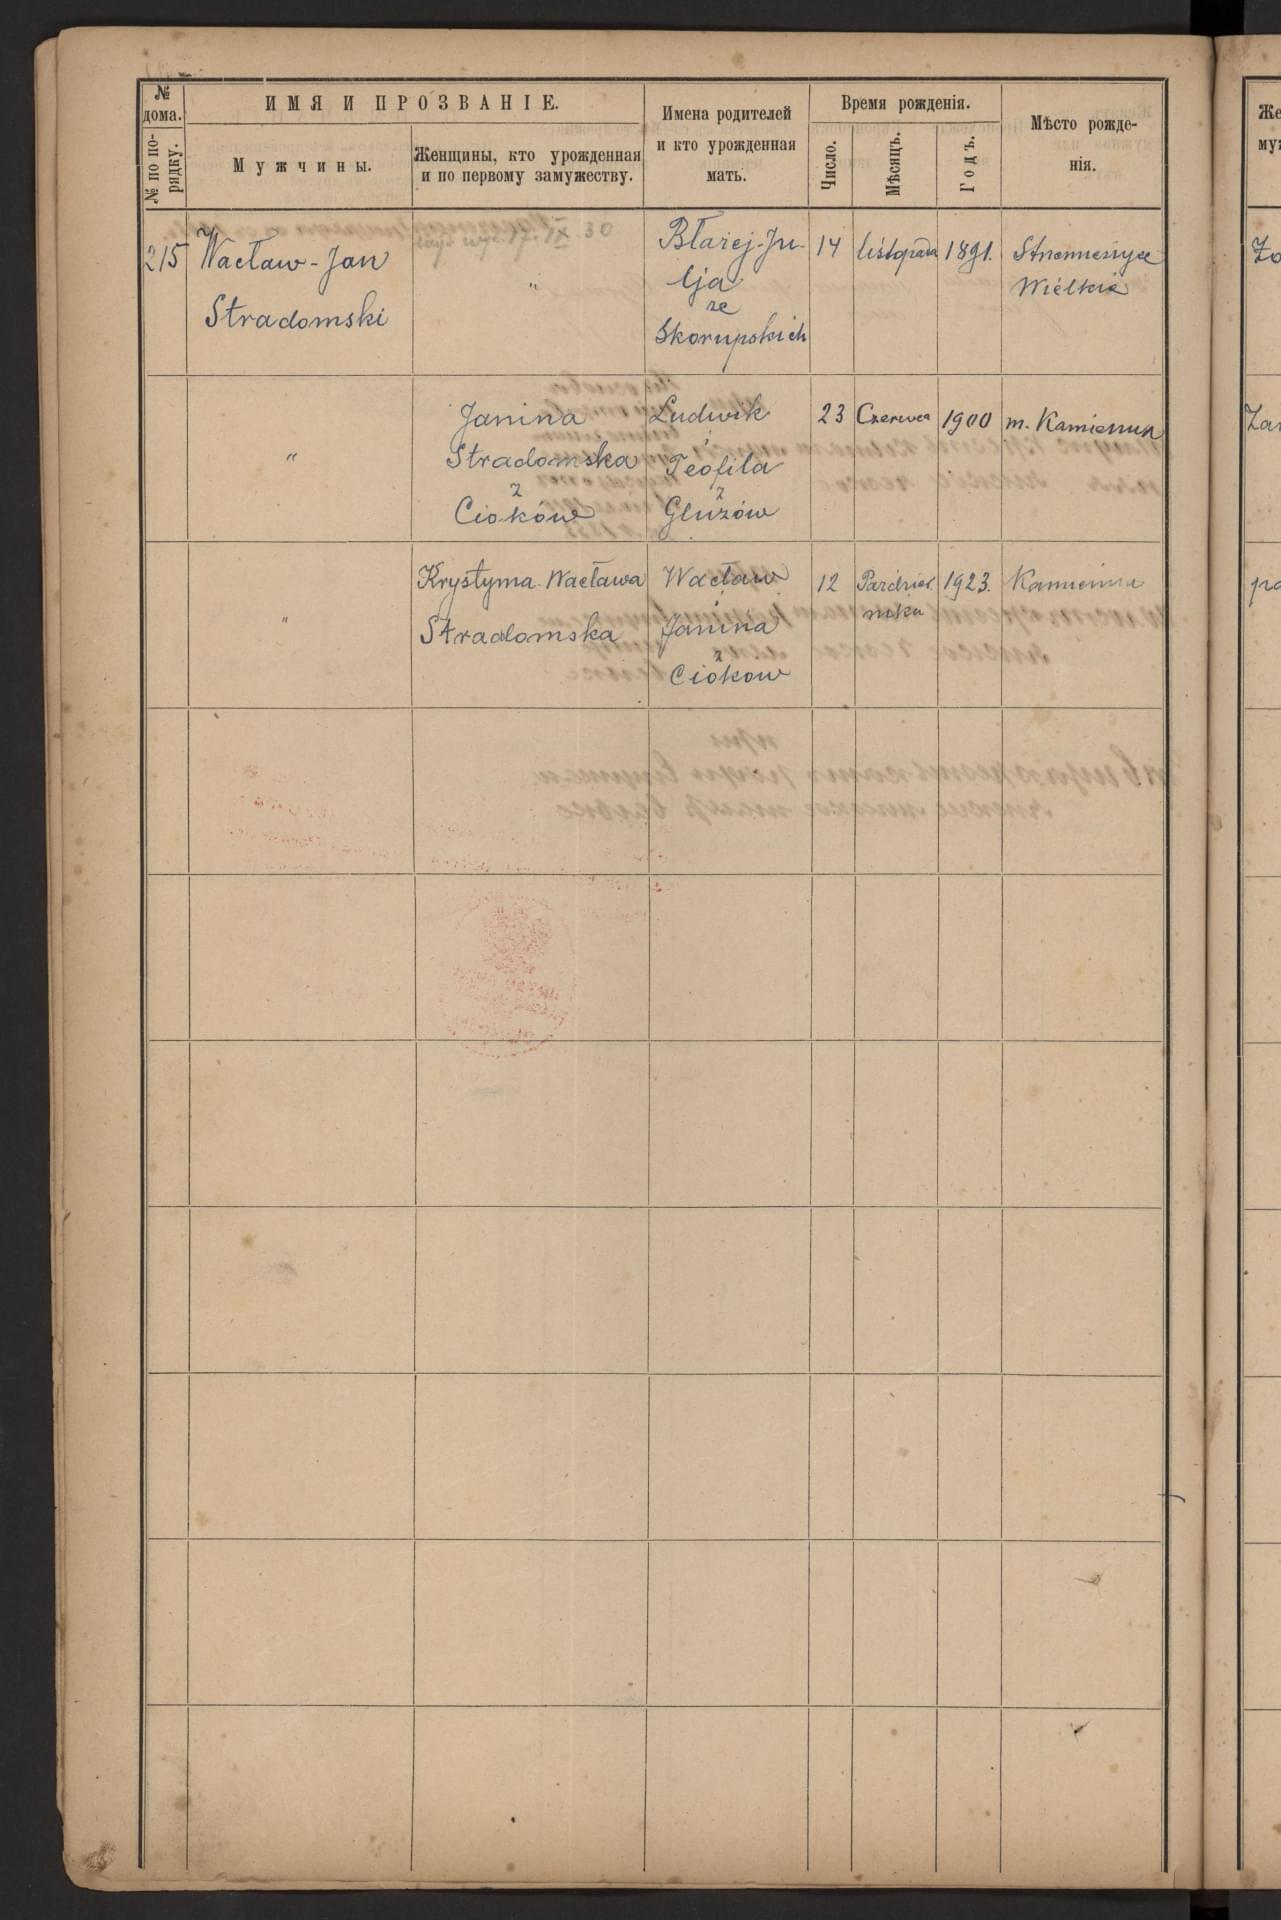 №
дома.
№ по по-
рядку.
ИМЯ И ПРОЗВАНІЕ.
Мужчины.
Женщины, кто урожденная
и по первому замужеству.
Имена родителей
и кто урожденная
мать.
Время рожденія.
Число.
Мѣсяцъ.
Годъ.
Мѣсто рожде-
нія.
17. IX. 30
215
Wacław-Jan
Stradomski
"
Błażej-Ju-
lja
ze
Skorupskich
14
listopada
1891.
Strzemieszyce
Wielkie
"
Janina
Stradomska
z
Cioków
Ludwik
i
Teofila
z
Gluzów
23
Czerwca
1900
m. Kamiensk
"
Krystyma Wacława
Stradomska
Wacław
i
Janina
z
Ciokow
12
Paździer
nika
1923.
Же
муж